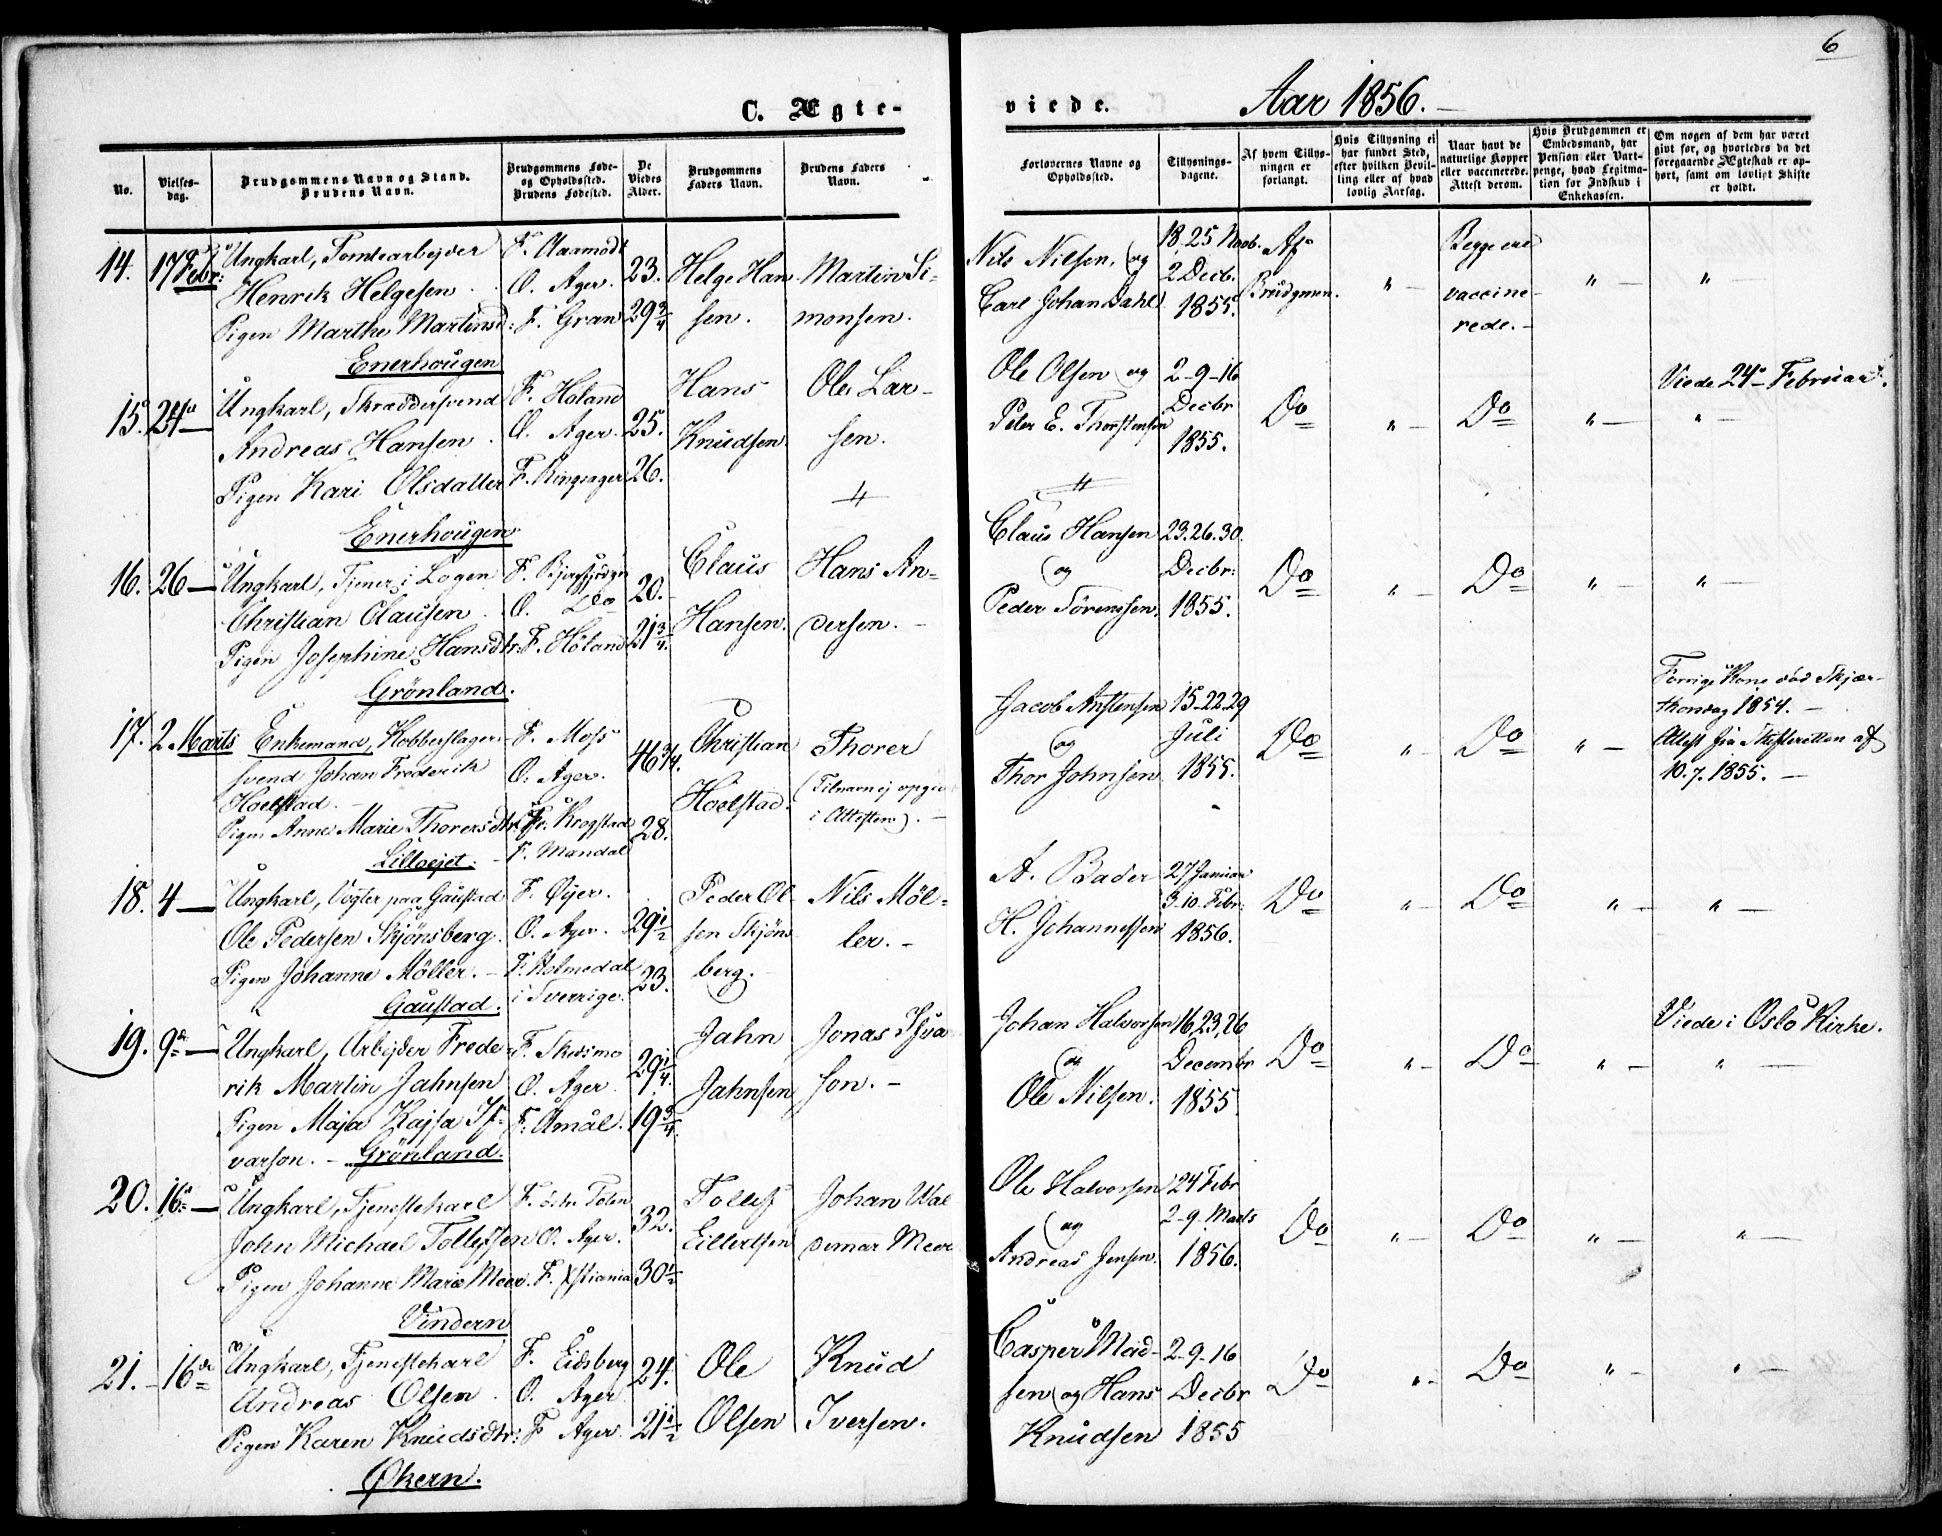 6
C. Ægte-
viede.
Aar 1856.
No.
Vielses-
dag.
Brudgommens Navn og Stand.
Brudens Navn.
Brudgommens Føde-
og Opholdssted.
Brudens Fødested.
De
Viedes
Alder.
Brudgommens
Faders Navn.
Brudens Faders
Navn.
Forlovernes Navne og
Opholdssted.
Tillysnings-
dagene.
Af hvem Tillys-
ningen er
forlangt.
Hvis Tillysning ei
har fundet Sted,
efter hvilken Bevil-
ling eller af hvad
lovlig Aarsag.
Naar havt de
naturlige Kopper
eller vaccinerede.
Attest derom.
Hvis Brudgommen er
Embedsmand, har
Pension eller Vart-
penge, hvad Legitima-
tion for Indskud i
Enkekassen.
Om nogen af dem har været
givt før, og hvorledes da det
foregaaende Ægteskab er op-
hørt, samt om lovligt Skifte
er holdt.
14. 17 Febr:
Ungkarl, Tomtearbejder
Henrik Helgesen
Pigen Marthe Martinsd:
Enerhougen
F. Aaamodt
O. Ager.
F. Gran
23.
29 3/4
Helge Han
sen.
Martin Si-
monsen.
Nils Nilsen, og
Carl Johan Dahl
18. 25 Novb.
2 Decb.
1855.
Af
Brudgmen.
" —
Begge ere
vaccine-
rede. -
" —
"
15. 24de —
Ungkarl, Skræddersvend
Andreas Hansen
Pigen Kari Olsdatter
Enerhougen
F. Høland
O. Ager.
F. Ringsager
25.
26.
Hans
Knudsen
Ole Lar-
sen.
Ole Olsen og
Peter E. Thorstensen
2-9-16
Decbr
1855.
Do
" —
Do
" —
Viede 24de Februar.
" —
16. 26 —
Ungkarl, Tjener i Logen
Christian Clausen
Pigen Josephine Hansdtr:
Grönland.
O. Do
F. Höland
20.
21 3/4.
Claus
Hansen.
Hans An-
dersen. -
Claus Hansen
og
Peder Sörensen.
23.26.30.
Decbr:
1855.
Do
" —
Do
" —
" —
17. 2 Marts
Enkemand, Kobberslager-
svend Johan Frederik
Hoelstad. -
Pigen Anne Marie Thorersdtr
Lilloejet.
F. Moss
O. Ager.
Fr: Krogstad
F. Mandal
46 3/4.
28.
Christian
Hoelstad.
Thorer
(Tilnavn ej opgivet
i Attesten). -
Jacob Anstensen
og
Thor Johnsen
15-22-29
Juli
1855.
Do
" —
Do
" —
Forrige Kone död Skjær-
thorsdag 1854. -
Attest fra Skifteretten af
10.7.1855. —
18. 4 —
Ungkarl, Vogter paa Gaustad
Ole Pedersen Skjönsberg.
Pigen Johanne Möller. -
Gaustad.
F. Öyer.
O. Ager.
F. Holmedal
i Sverrige.
29 1/2
23.
Peder Ol-
sen Skjöns
berg.
Nils Möl-
ler. -
A. Bader
H. Johannessen
27 Januar
3-10. Febr:
1856.
Do
" —
Do
" —
" —
19. 9de —
Ungkarl, Arbejder Frede-
rik Martin Jahnsen
Pigen Maja Kajsa Is-
varson. - Grönland.
F. Skedsmo
O. Ager
F. Åmål.
29 1/4.
19 3/4.
Jahn
Jahnsen
Jonas Isva
son. -
Johan Halvorsen
og
Ole Nilsen.
16,23,26
Decembr
1855.
Do
" —
Do
" —
Viede i Oslo Kirke.
" —
20. 16de —
Ungkarl, Tjenestekarl
John Michael Tollefsen
Pigen Johanne Marie Meer.
Vindern
F. östre Toten
O. Ager.
F. Xstiania
32.
30 1/2
Tollef
Eillertsen
Johan Wal
demar Meer
Ole Halvorsen
og
Andreas Jensen.
24 Febr
2-9. Marts
1856.
Do
" —
Do
" —
" —
21. - 16de
Ungkarl, Tjenestekarl
Andreas Olsen
Pigen Karen Knudsdtr:
Økern.
F. Eidsberg
O. Ager
F Ager.
24.
21 1/2
Ole
Olsen
Knud
Iversen.
Casper Mad-
sen og Hans
Knudsen
2-9-16
Decbr
1855
Do
" -
Do
" —
" —